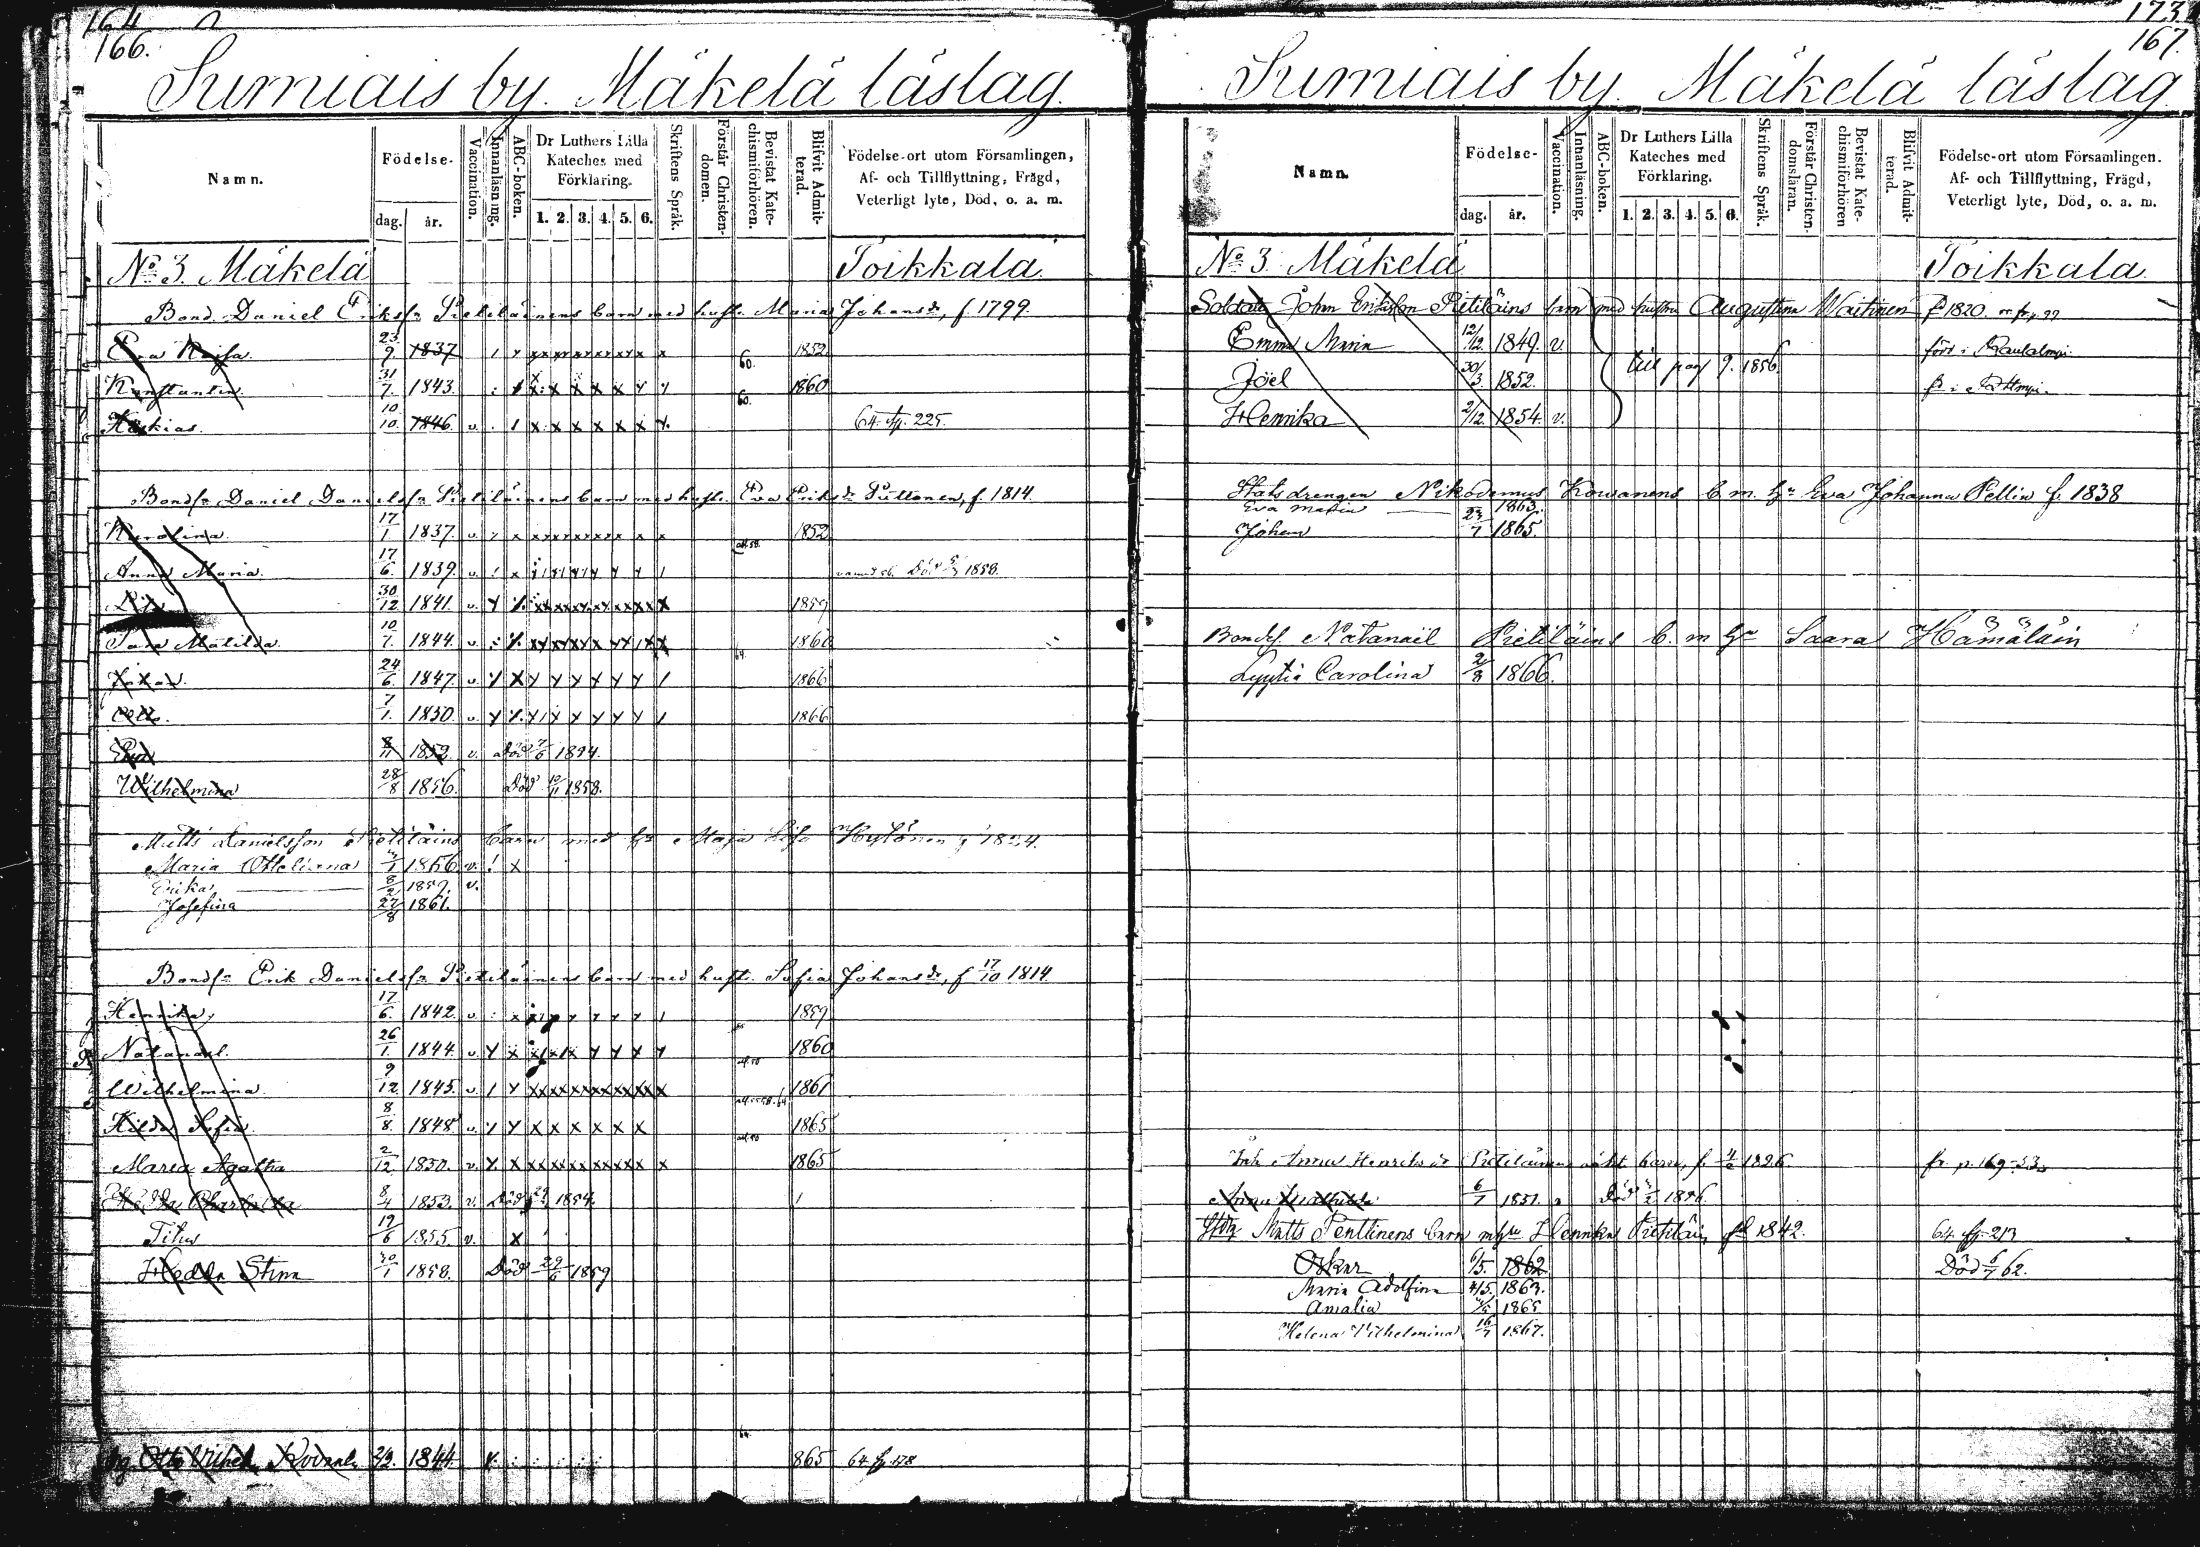 164
166.
Sumiais by. Mäkelä läslag.
Namn.
Födelse-
dag. år.
Vaccination.
Innanläsning.
ABC-boken.
Dr Luthers Lilla Kateches med Förklaring.
1. 2. 3. 4. 5. 6.
Skriftens Språk.
Förstår Christen-domen.
Bevistat Kate-chismiförhören.
Blifvit Admit-terad.
Födelse-ort utom Församlingen, Af- och Tillflyttning, Frägd, Veterligt lyte, Död, o. a. m.
No 3. Mäkelä Toikkala.
Bond. Daniel Eriksfn Pietiläinens barn med hustr. Maria Johansdr, f. 1799.
Eva Kajsa. 23/9. 1837 60. 1852
Konstantin. 31/7. 1843. 60. 1860
Heskias. 10/10. 1846. v. 64 fp. 225.
Bondfn Daniel Danielsfn Pietiläinens barn med hustr. Eva Eriksdr Puttonen, f. 1814.
Karolina. 17/1 1837. v. 1852
Anna Maria. 17/6. 1839. v. Död 1858.
30/12 1841. v. 1859
Sara Matilda. 10/7. 1844. v. 64. 1860
Johan. 24/6. 1847. v. 1866
Otto. 7/1. 1850. v. 1866
Eva 8/11 1852. v. Död 1/6 1854.
Wilhelmina 28/8 1856. Död 10/11 1858.
Matts Danielsson Pietiläins barn med hu Maja Lisa Hytönen
Maria Ottelina 1856 v. x
Erika 8/2 1859. v.
Josefina 27/8 1861.
Bondfn Erik Danielsfn Pietiläinens barn med hustr. Sofia Johansdr, f. 17/10 1814.
Henrika, 17/6. 1842. v. 1859
Natanael. 26/1. 1844 v. 1860
Wilhelmina. 9/12 1845. v. 1861
Hilda Sofia. 8/8. 1848 v. 1865
Maria Agatha 2/12. 1850. v. 1865
Hedda Charlotta 8/4 1853. v. Död 1854.
Titus 19/6 1855. v. x
Hedda Stina 30/1 1858. Död 29/6 1859
Otto Vilhelm 2/3. 1844. 64. 865 64 fp 178
173
167.
Sumiais by. Mäkelä läslag
Namn.
Födelse-
dag. år.
Vaccination.
Innanläsning.
ABC-boken.
Dr Luthers Lilla Kateches med Förklaring.
1. 2. 3. 4. 5. 6.
Skriftens Språk.
Förstår Christen-domsläran.
Bevistat Kate-chismiförhören
Blifvit Admit-terad.
Födelse-ort utom Församlingen. Af- och Tillflyttning, Frägd, Veterligt lyte, Död, o. a. m.
No 3 Mäkelä Toikkala
Soldaten John Eriksson Pietiläins barn med hustru Augustina Wäitinen f. 1820.
Emma Maria 12/12. 1849. v. född i Rautalampi
Joel 30/3. 1852. till pag 9. 1856.
Hennika 2/12. 1854. v.
Statsdrengen Nikodemus Kowanens b. m. hu Eva Johanna Pellin f. 1838
Eva Maria 1863.
Johan 23/7 1865.
Bondes. Natanaël Pietiläins b. m hu Saara Hämäläin
Lyytia Carolina 1866.
Inh Anna Henriksdr Pietiläinens oäkt barn, f. 4/2 1826. fr. p. 169
Anna Mathilda 6/7 1851. Död 1856.
Matts Penttinens barn m hu Hennika Pietiläin 1842. 64 fp. 213
Oskar 6/5. 1862 Död 6/7 62.
Maria Adolfina 4/5. 1863.
Amalia 1865
Helena Vilhelmina 16/7 1867.